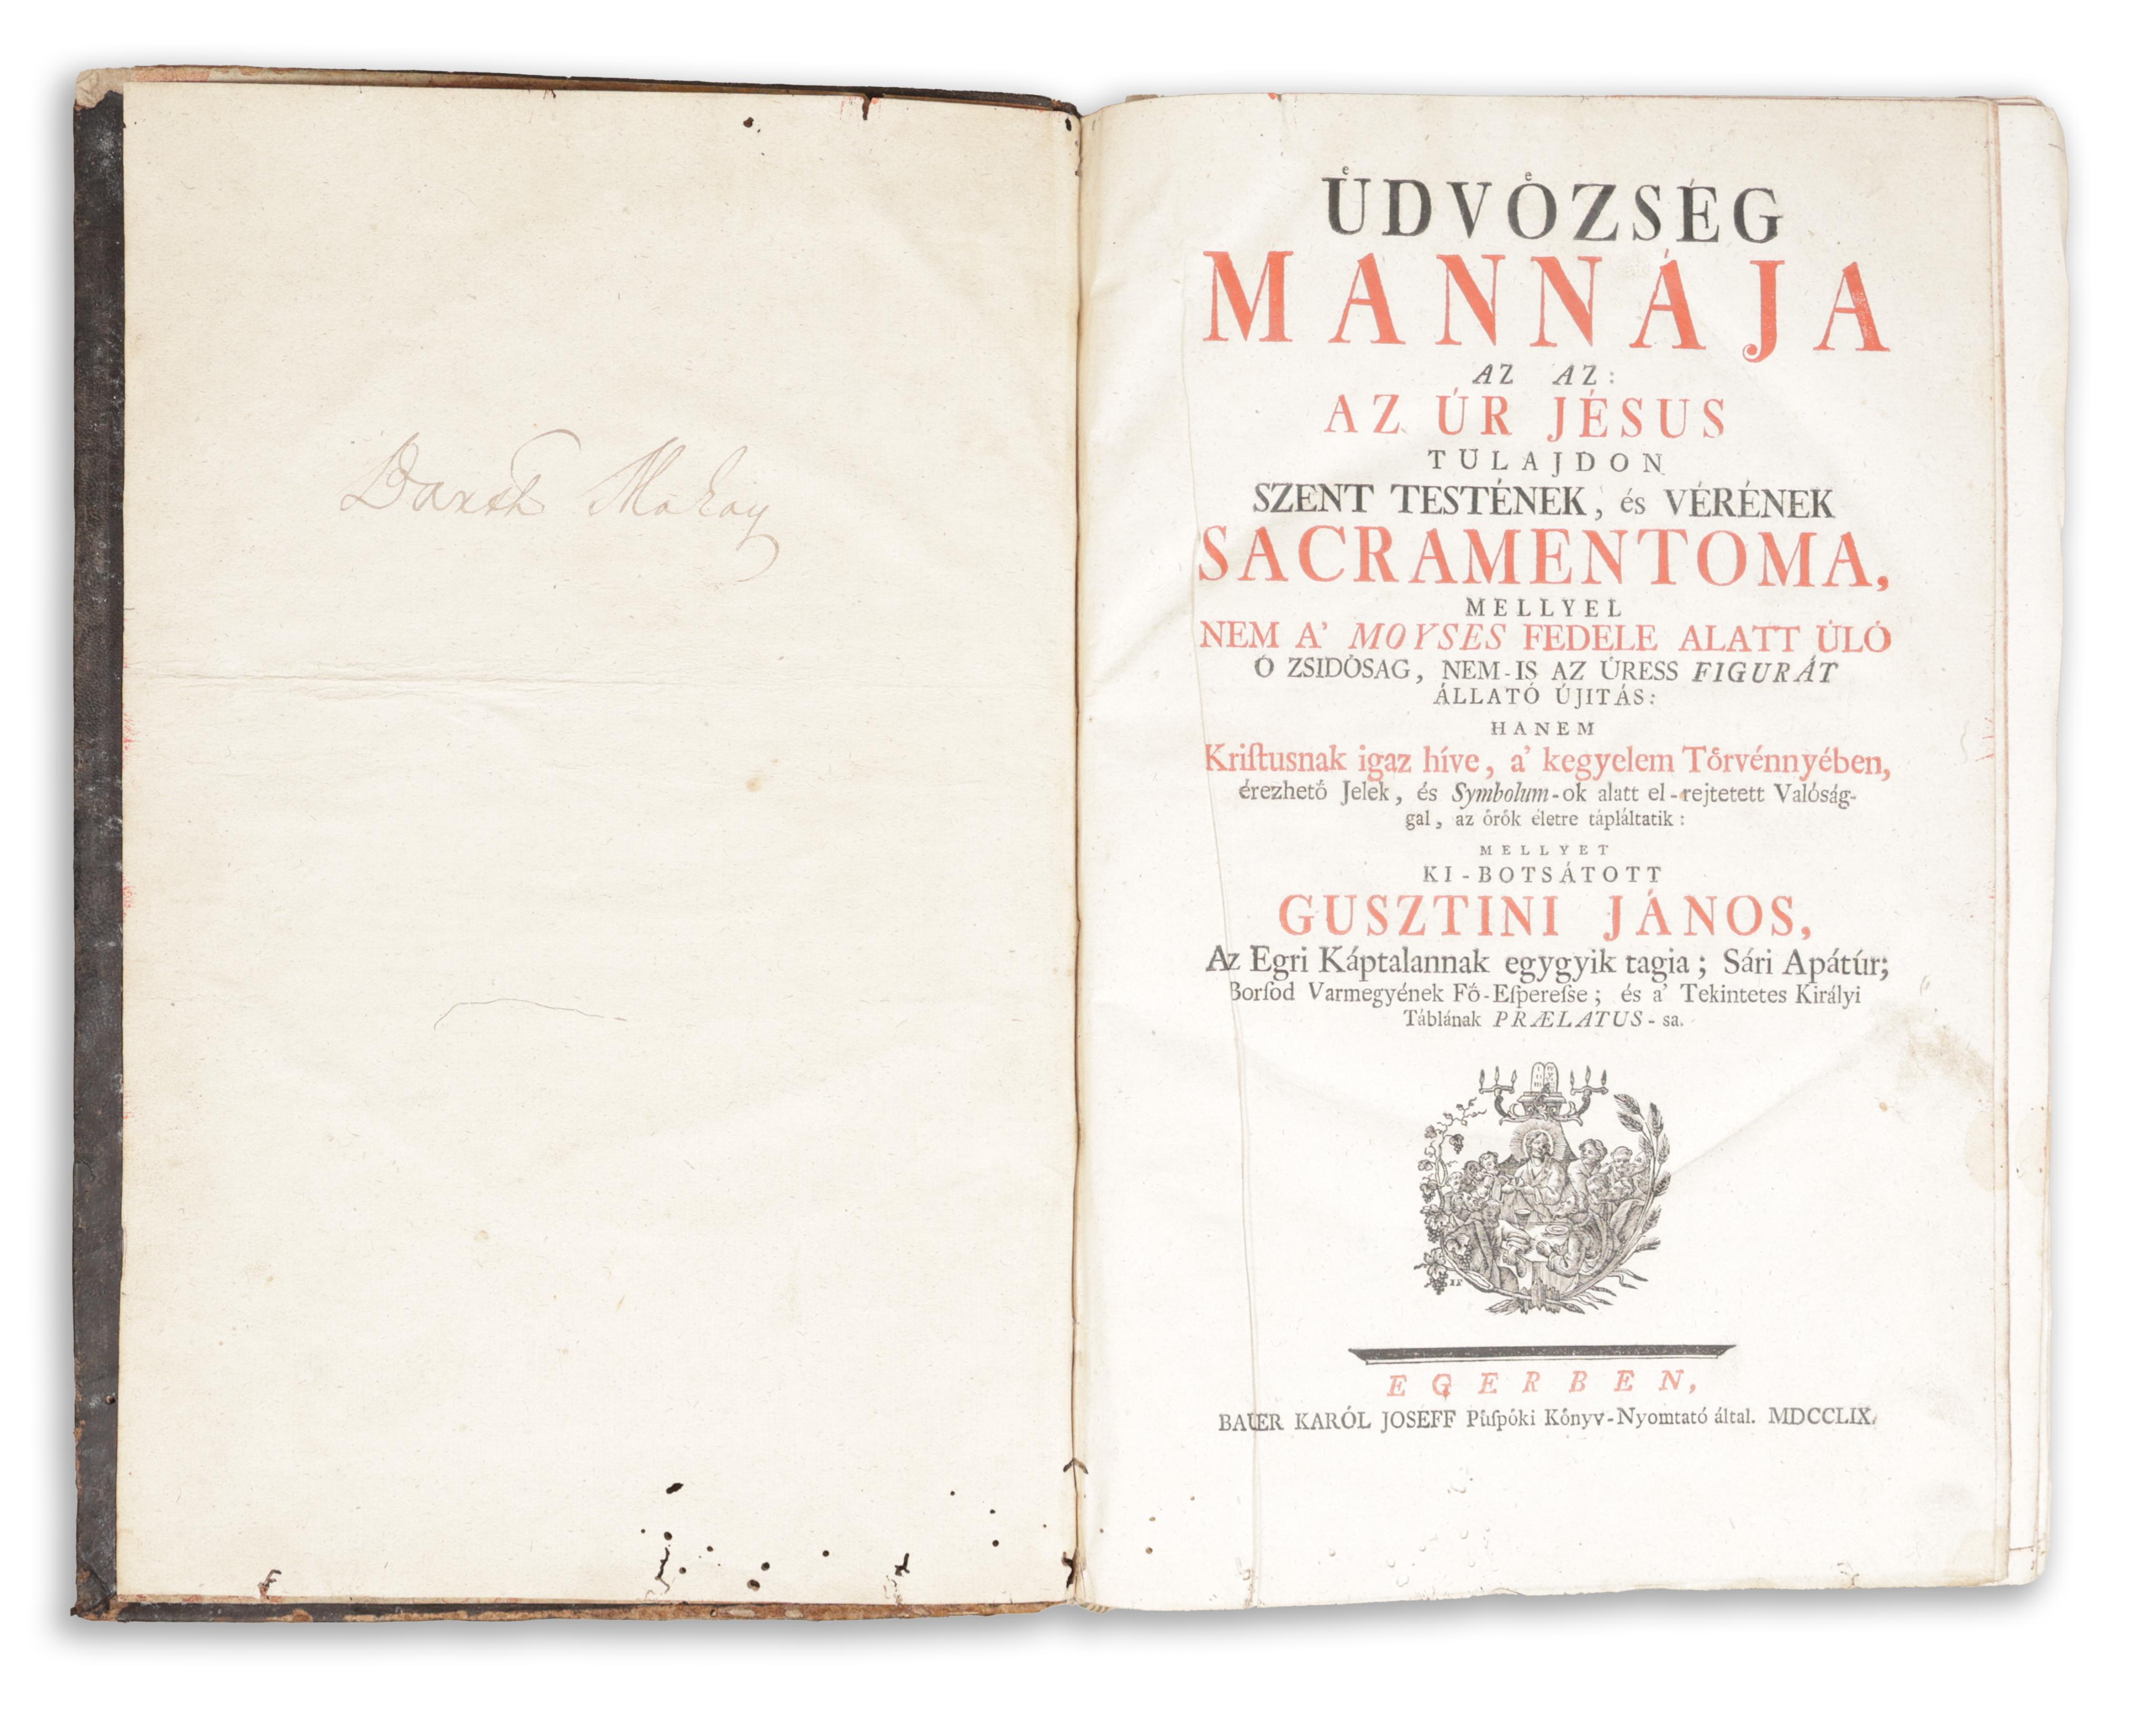 UͤDVOͤZSÉG
MANNÁJA
AZ AZ:
AZ ÚR JÉSUS
TULAJDON
SZENT TESTÉNEK, és VÉRÉNEK
SACRAMENTOMA,
MELLYEL
NEM A' MOYSES FEDELE ALATT UͤLOͤ
Ó ZSIDÓSAG, NEM-IS AZ ÚRESS FIGURÁT
ÁLLATÓ ÚJITÁS:
HANEM
Kriſtusnak igaz híve, a' kegyelem Toͤrvénnyében,
érezhetoͤ Jelek, és Symbolum-ok alatt el-rejtetett Valóság-
gal, az oͤroͤk életre tápláltatik:
MELLYET
KI-BOTSÁTOTT
GUSZTINI JÁNOS,
Az Egri Káptalannak egygyik tagia; Sári Apátúr;
Borſod Varmegyének Foͤ-Eſpereſse; és a' Tekintetes Királyi
Táblának PRÆLATUS-sa.
IF
EGERBEN,
BAUER KARÓL JOSEFF Puͤſpoͤki Koͤnyv-Nyomtató által. MDCCLIX.